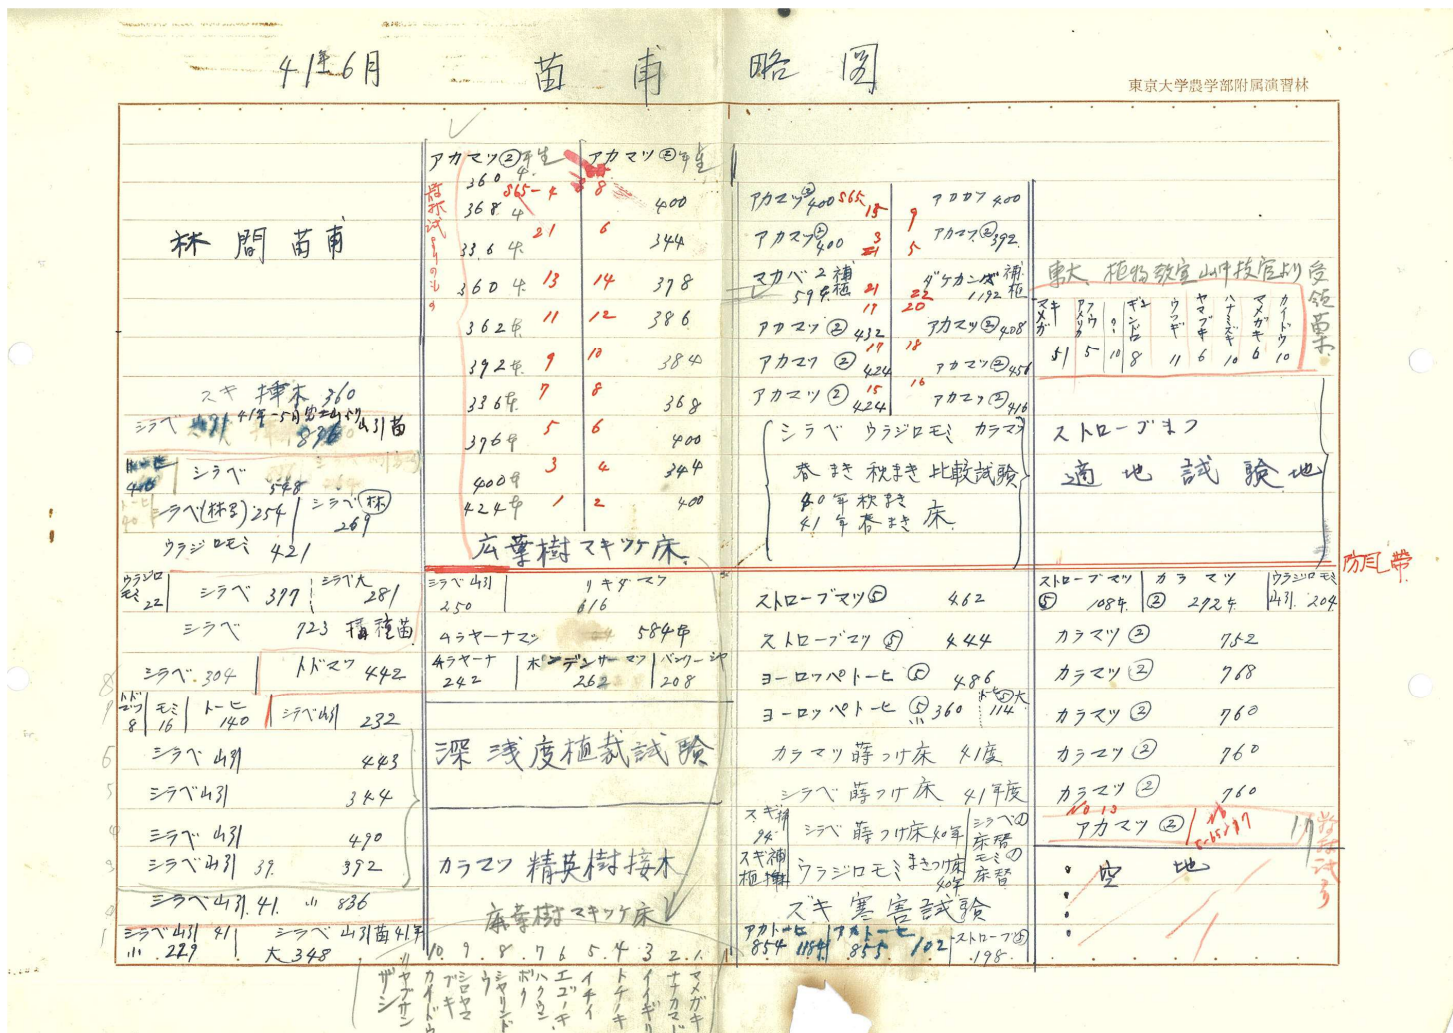 41年6月 苗甫 略図
東京大学農学部附属演習林
林間苗甫
スギ 挿木 360
シラベ 41年-5月富士山より山引苗
836
シラベ 548
シラベ(林子) 254 シラベ(林) 269
ウラジロモミ 421
ウラジロモミ 22 シラベ 397 シラベ大 281
シラベ 723 播種苗
シラベ 304 トドマツ 442
トドマツ 8 モミ 16 トーヒ 140 シラベ山引 232
シラベ山引 443
シラベ山引 344
シラベ山引 490
シラベ山引 39. 392
シラベ山引.41. 小 836
シラベ山引 41 小. 229 シラベ山引苗41年 大 348
アカマツ②年生 アカマツ②年生
360本 S65-4 8
368本 400
336本 21 6 344
360本 13 14 378
362本 11 12 386
392本 9 10 384
336本 7 8 368
376本 5 6 400
400本 3 4 344
424本 1 2 400
広葉樹マキツケ床
シラベ山引 250 リキダマツ 616
584本
242 262 208
深浅度植栽試験
カラマツ 精英樹接木
広葉樹マキツケ床
10. 9. 8. 7. 6. 5. 4. 3. 2. 1.
マメガキ
ナナカマド
イイギリ
トチノキ
イチイ
エゴノキ
ハクウンボク
シャリンドウ
シロヤマブキ
カイドウ
リヤブサンザシ
アカマツ② 400 S65 15 9 アカマツ 400
アカマツ② 400 3 21 5 アカマツ② 392
マカバ2 補植 594 21 22 ダケカンバ 補植 1192
アカマツ② 432 17 20 アカマツ② 408
アカマツ② 424 17 18 アカマツ② 456
アカマツ② 424 15 16 アカマツ② 416
シラベ ウラジロモミ カラマツ
春まき秋まき比較試験
40年秋まき
41年春まき床
ストローブマツ⑤ 462
ストローブマツ⑤ 444
ヨーロッパトーヒ⑤ 486
ヨーロッパトーヒ⑤小 360 トーヒ⑤大 114
カラマツ蒔つけ床 41度
シラベ蒔つけ床 41年度
スギ挿 94 シラベ蒔つけ床40年 シラベの床替
スギ補植 ウラジロモミまきつけ床40年 モミの床替
スギ寒害試験
アカトーヒ 854 1184 アカトーヒ 855 102 ストローブ⑤ 198
東大、植物教室山中技官より受領苗木
マメガキ 51
アメリカフウ 5
? 10
ギンドロ 8
ウツギ 11
ヤマブキ 6
ハナミズキ 10
マメガキ 6
カイドウ 10
ストローブまつ
適地試験地
防風帯
ストローブマツ⑤ 1084 カラマツ② 2924 ウラジロモミ山引. 204
カラマツ② 752
カラマツ② 768
カラマツ② 760
カラマツ② 760
カラマツ② 760
No 13
アカマツ② No S-65 17
空地